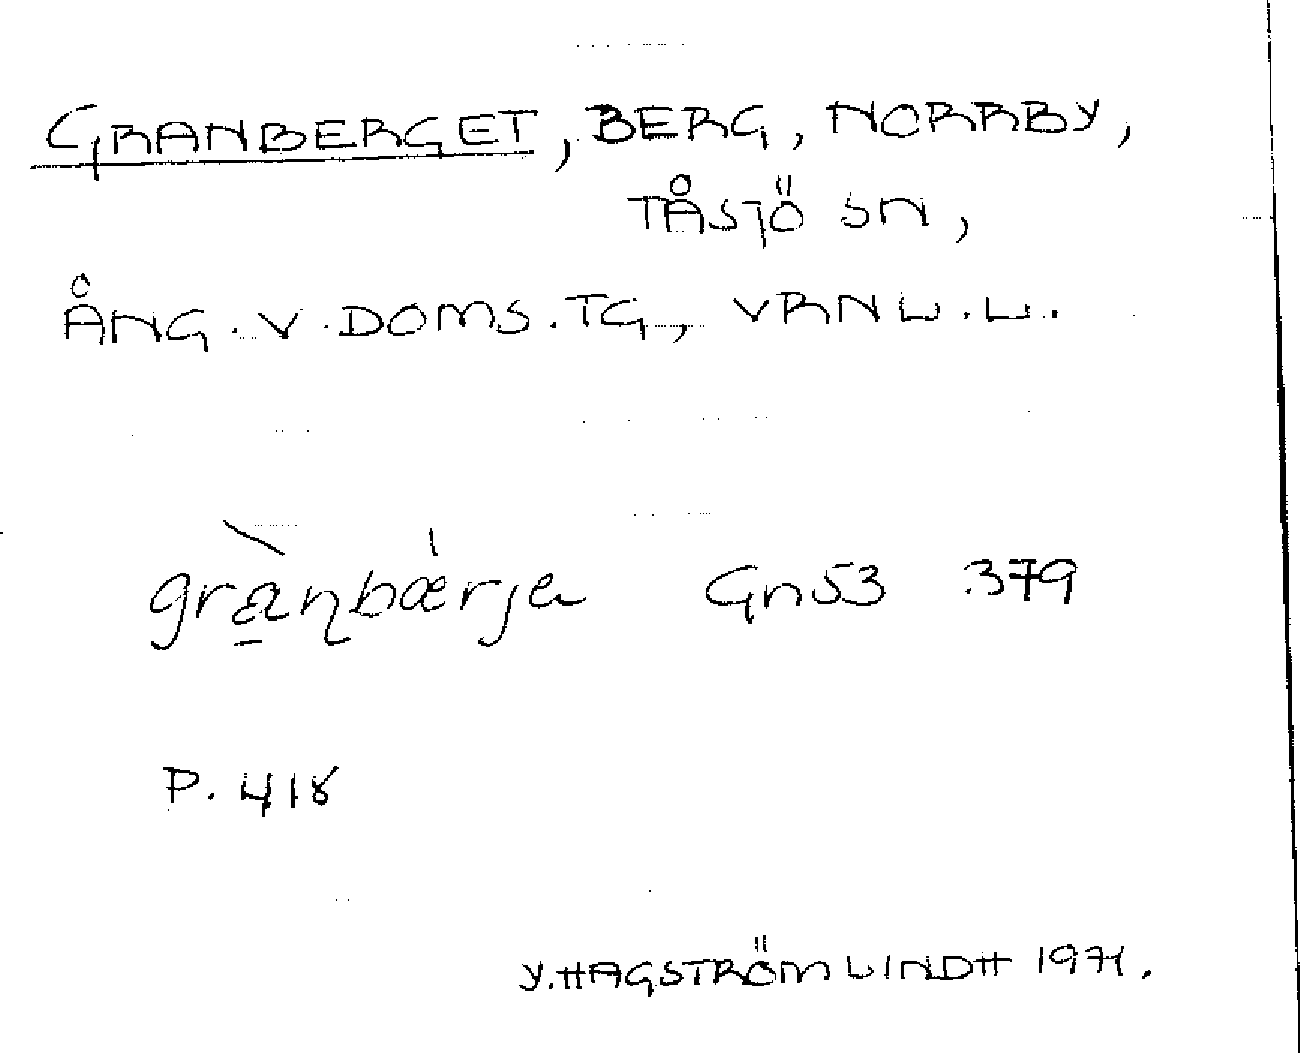 GRANBERGET, BERG, NORRBY,
TÅSJÖ SN,
ÅNG. V. DOMS. TG, VRNL. L.
grànbærja Gn53 379
P. 418
Y. HAGSTRÖM LINDH 1971.